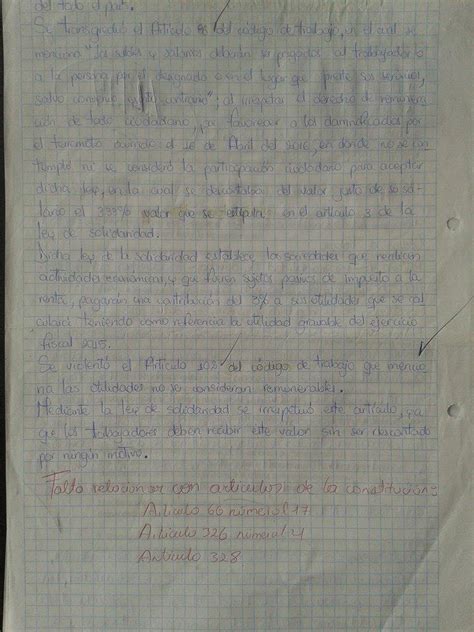 del todo el país.
Se transgredió el Artículo 86 del código de trabajo, en el cual se
menciona "los sueldos y salarios deberán ser pagados al trabajador o
a la persona por él designada o en el lugar que preste sus servicios,
salvo convenio escrito contrario"; al irrespetar el derecho de remunera
ción de todo ciudadano, se favorecer a los damnificados por
el terremoto ocurrido el 16 de Abril del 2016, en donde no se
ni se consideró la participación ciudadana para aceptar
dicha ley, en la cual se descontaba del valor justo de su sa-
lario el 3.33% valor que se estipula en el artículo 3 de la
ley de solidaridad.
Dicha ley de la solidaridad establece, las sociedades que realicen
actividades económicas, y que fueran sujetos pasivos de impuesto a la
renta, pagarán una contribución del 3% a sus utilidades que se cal
culará teniendo como referencia la utilidad gravable del ejercicio
fiscal 2015.
Se violentó el Artículo 102 del código de trabajo que mencio
na las utilidades no se considerará remunerables.
Mediante la ley de solidaridad se irrespetuó este artículo, ya
que los trabajadores deben recibir este valor sin ser descontado
por ningún motivo.
Falta relacionar con artículos de la constitución:
Artículo 66 numeral 17
Artículo 326 numeral 4
Artículo 328